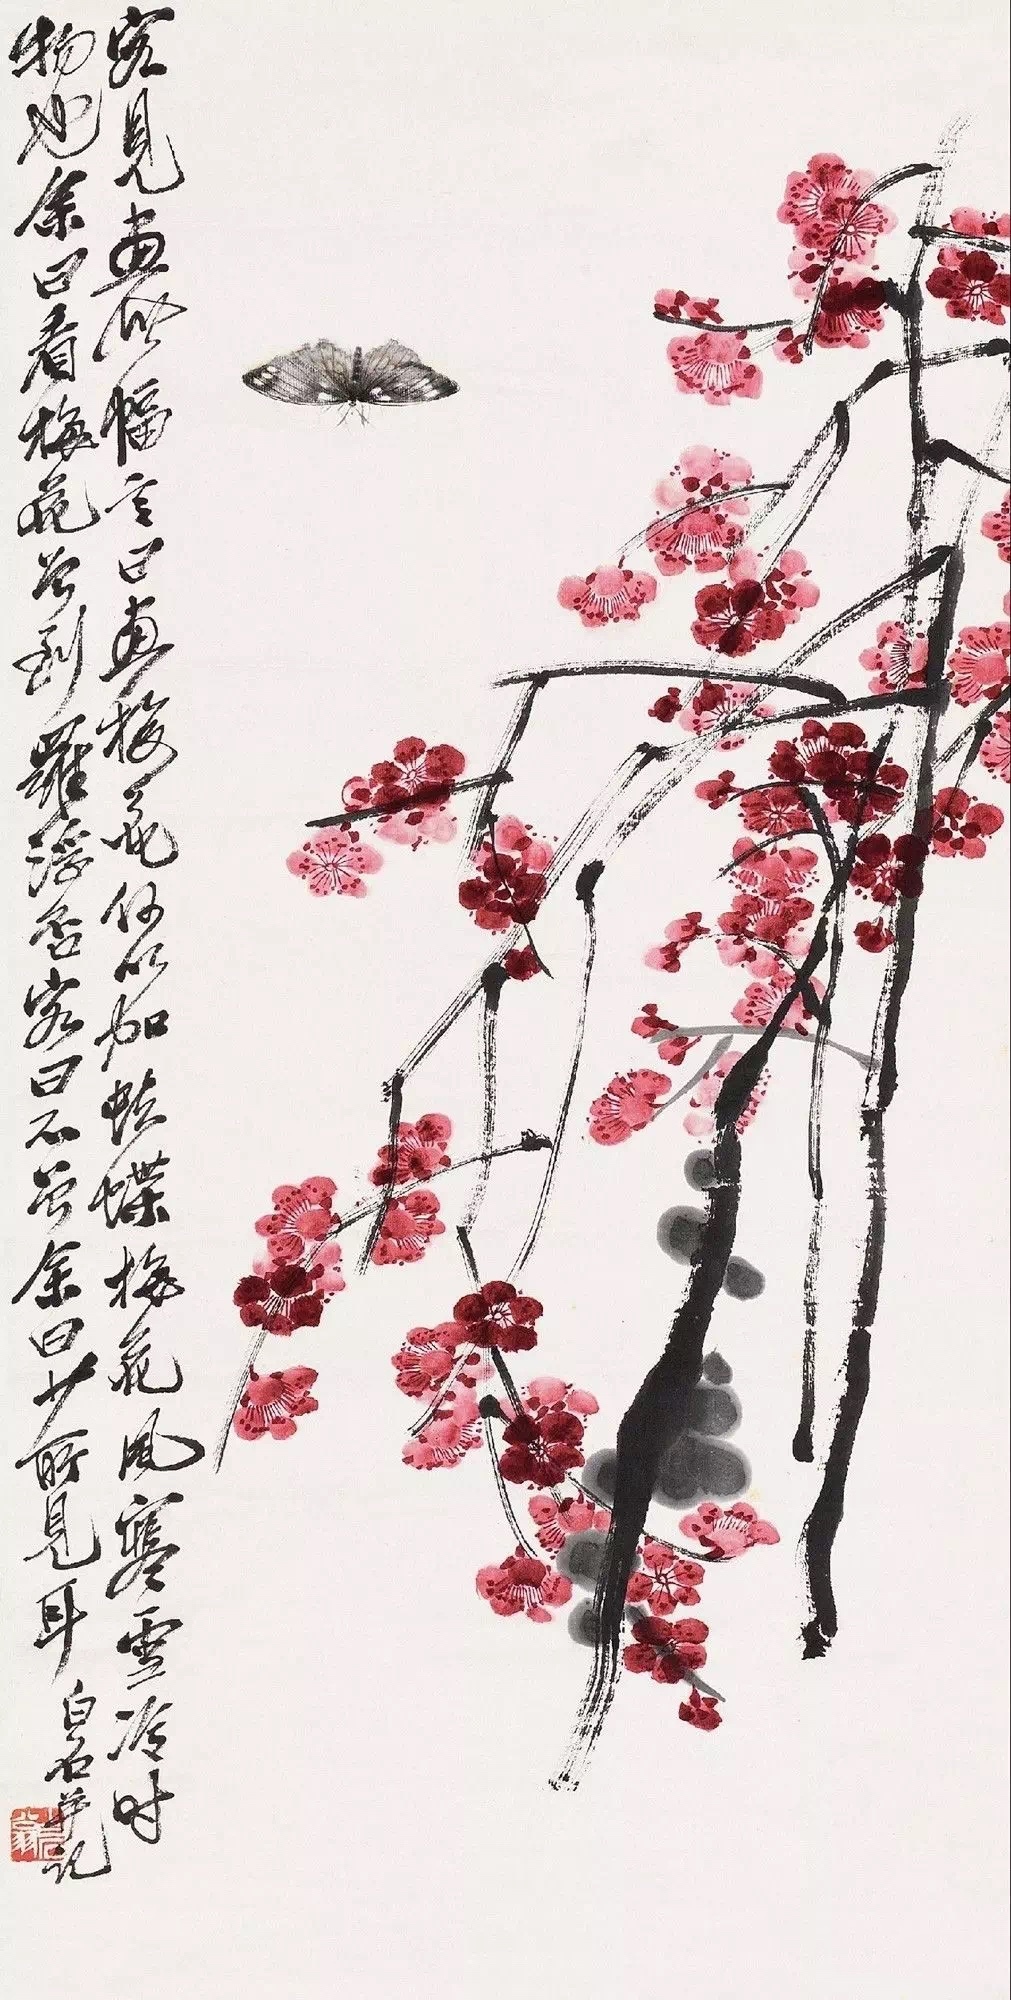 客見畫此幅言曰畫梅花何以加蛺蝶梅花風寒雪冷时
物也余曰看梅花曾到羅浮否客曰不曾余曰少所見耳
白石并記